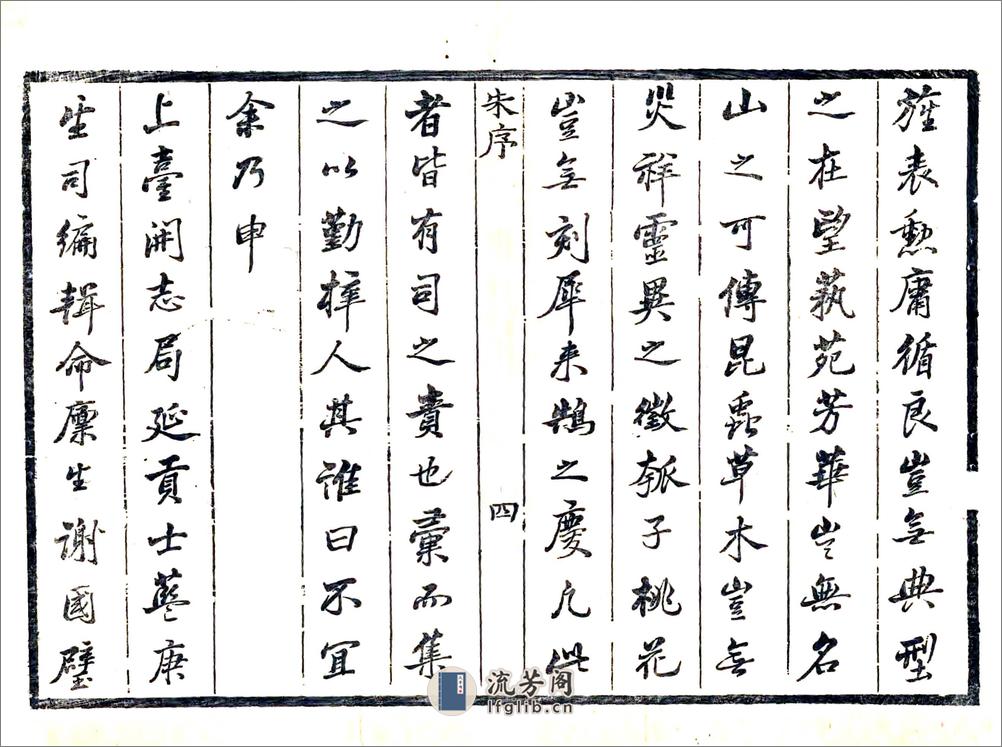 旌表勲庸循良豈無典型
之在望蓺苑芳華豈無名
山之可傳昆蟲草木豈無
災祥靈異之徵瓠子桃花
豈無刻犀来鵠之慶凡此
朱序
四
者皆有司之責也彙而集
之以勤梓人其誰曰不宜
余乃申
上臺開志局延貢士藍庚
生司編輯命廩生謝國璧
流芳阁
lfglib.cn